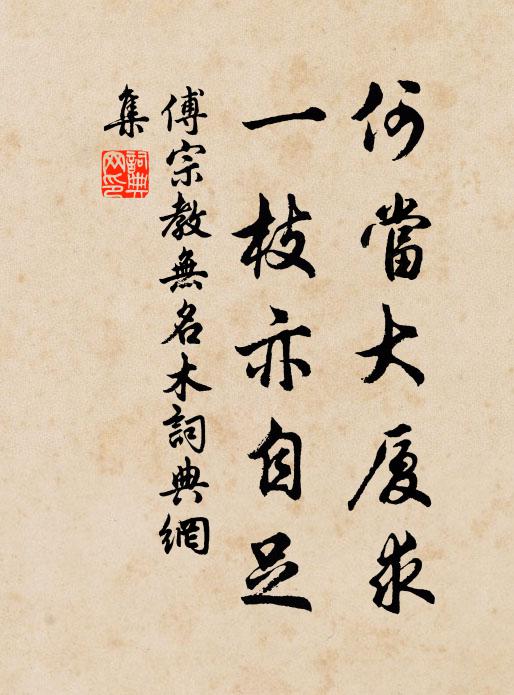 何當大厦求
一枝亦自足
傅宗教無名木詞典網
集
詞典
网印